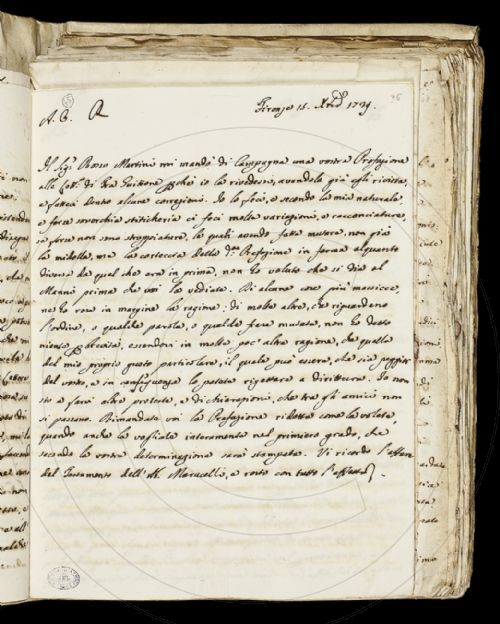 A. C. R
Firenze 15. Xbre 1729.
Il Sigr. Rosso Martini mi mandò di Campagna una vostra Prefazione
alle Lett. di Fra Guittone perchè io la rivedessi, avendola già esso rivista,
e fattovi alcune correzioni. Io lo feci, e secondo la mia naturale,
e forse soverchia stitichezza ci feci molte variazioni, e racconciature,
se forse non sono stroppiature, le quali avendo fatta mutare, non già
la midolla, ma la corteccia della Prefazione in forma alquanto
diversa da quel che era in prima, non ho voluto che si dia al
Manni prima che voi la vediate. Di alcune cose più massicce,
ne ho reso in margine la ragione: di molte altre, che riguardano
l'ordine, o qualche parola, o qualche frase mutata, non ho detto
niente per brevità, essendovi in molte poc' altra ragione, che quella
del mio proprio gusto particolare, il quale può essere, che sia peggior
del vostro, e in conseguenza lo potete rigettare a dirittura. Io non
sto a fare altre proteste, e dichiarazioni, che tra gli amici non
si passano. Rimandate voi la Prefazione ridotta come la volete,
quando anche la vogliate interamente nel primiero grado, che
secondo la vostra determinazione sarà stampata. Vi ricordo l'affare
del Testamento dell' Marucelli, e resto con tutto l'affetto